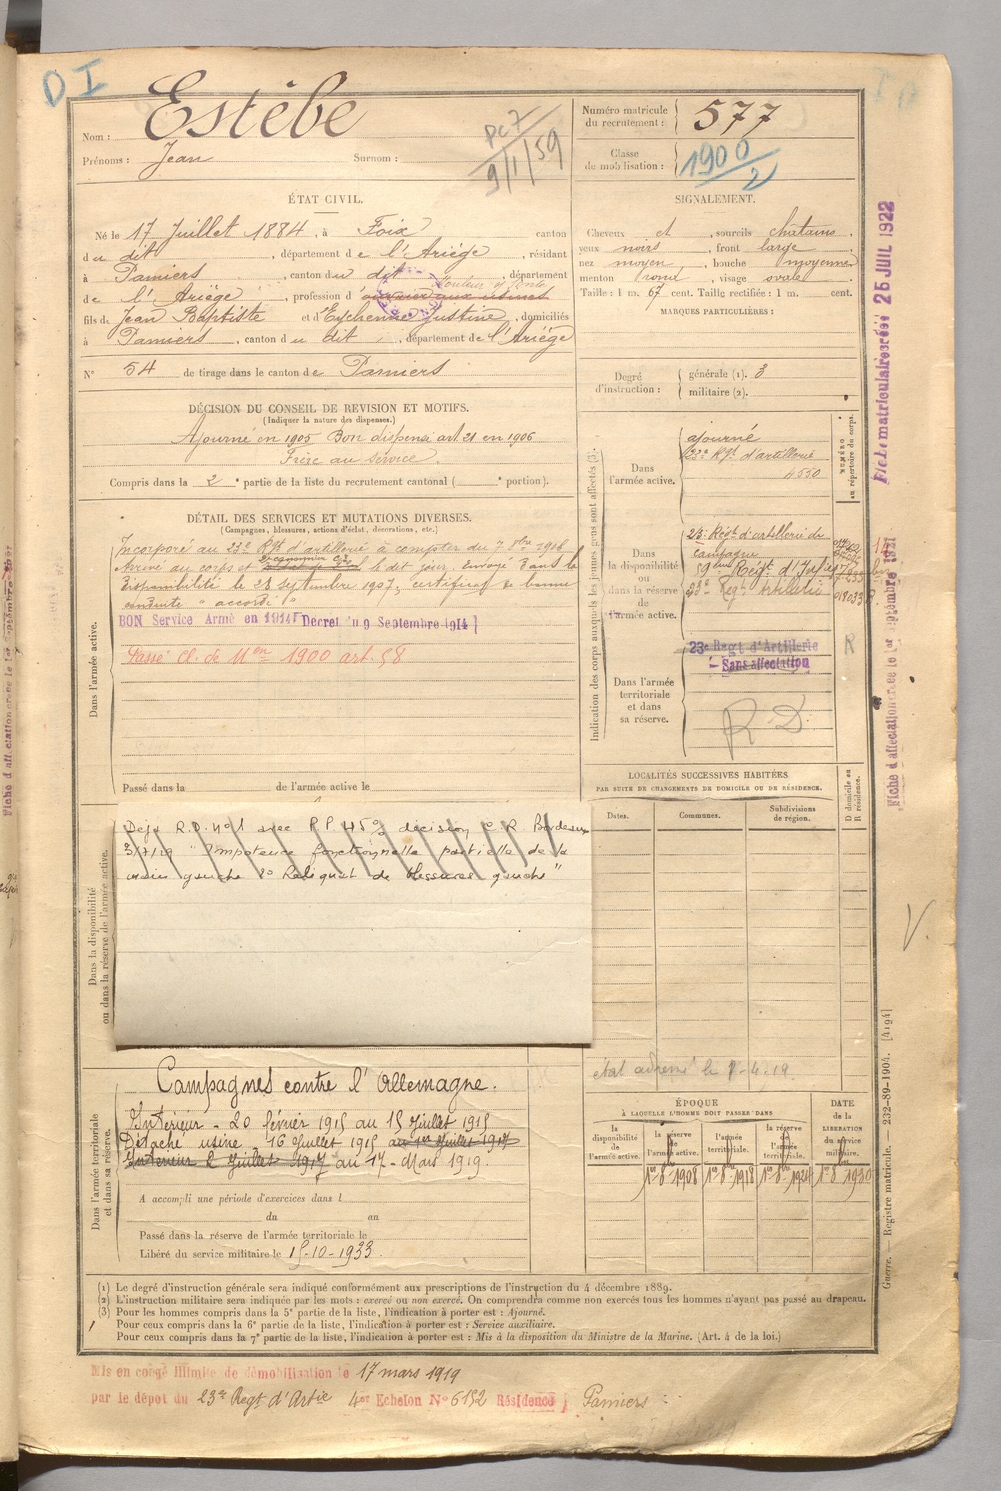 D I
Nom : Estèbe
Prénoms : Jean Surnom :
9/1/59
Numéro matricule du recrutement : 577
Classe de mobilisation : 1900/2
ÉTAT CIVIL.
Né le 17 Juillet 1884, à Foix canton
du dit, département de l'Ariège, résidant
à Pamiers, canton du dit, département
de l'Ariège, profession d'ouvrier aux usines
fils de Jean Baptiste et d'Eychenne Justine, domiciliés
à Pamiers, canton du dit, département de l'Ariège
N° 54 de tirage dans le canton de Pamiers
SIGNALEMENT.
Cheveux et, sourcils châtains,
yeux noirs, front large
nez moyen, bouche moyenne
menton rond, visage ovale
Taille : 1 m. 67 cent. Taille rectifiée : 1 m. cent.
MARQUES PARTICULIÈRES :
Degré d'instruction : générale (1). 3
militaire (2).
DÉCISION DU CONSEIL DE REVISION ET MOTIFS.
(Indiquer la nature des dispenses.)
Ajourné en 1905 Bon dispensé art. 21 en 1906
au service.
Compris dans la 2e partie de la liste du recrutement cantonal ( e portion).
DÉTAIL DES SERVICES ET MUTATIONS DIVERSES.
(Campagnes, blessures, actions d'éclat, décorations, etc.)
Dans l'armée active.
Incorporé au 23e Rgt d'artillerie à compter du 7 8bre 1906
Arrivé au corps et le dit jour. Envoyé dans la
disponibilité le 28 septembre 1907, certificat de bonne
conduite " accordé "
BON Service Armé en 1914 (Décret du 9 Septembre 1914)
Passé cl. de Mon 1900 art. 58
Passé dans la de l'armée active le
Dans la disponibilité ou dans la réserve de l'armée active.
Réf R.D. n°1 avec P.P. 45% décision C.R. Bordeaux
3/7/29 " Impotence fonctionnelle partielle de la
main gauche 2° Reliquat de blessures gauche "
Indication des corps auxquels les jeunes gens sont affectés (3).
NUMÉRO au répertoire du corps.
Dans l'armée active.
ajourné
23e Rgt d'artillerie
4550
Dans la disponibilité ou dans la réserve de l'armée active.
23e Régt d'artillerie de
campagne
59ème Régt d'Infanterie
23e Régt Artillerie
Dans l'armée territoriale et dans sa réserve.
23e Regt d'Artillerie
- Sans affectation
R
R D
LOCALITÉS SUCCESSIVES HABITÉES
PAR SUITE DE CHANGEMENTS DE DOMICILE OU DE RÉSIDENCE.
D domicile ou R résidence.
Dates. Communes. Subdivisions de région.
état adressé le 7-4-19
Dans l'armée territoriale et dans sa réserve.
Campagnes contre l'Allemagne.
Intérieur - 20 février 1915 au 15 Juillet 1915
Détaché usine - 16 Juillet 1915 au 1er Juillet 1917
Intérieur 2 Juillet 1917 au 17 - Mars 1919.
A accompli une période d'exercices dans l
du au
Passé dans la réserve de l'armée territoriale le
Libéré du service militaire le 15-10-1933.
ÉPOQUE
À LAQUELLE L'HOMME DOIT PASSER DANS
la disponibilité de l'armée active.
la réserve de l'armée active.
l'armée territoriale.
la réserve de l'armée territoriale.
DATE de la LIBÉRATION du service militaire.
1er 8bre 1908
(1) Le degré d'instruction générale sera indiqué conformément aux prescriptions de l'instruction du 4 décembre 1889.
(2) L'instruction militaire sera indiquée par les mots : exercé ou non exercé. On comprendra comme non exercés tous les hommes n'ayant pas passé au drapeau.
(3) Pour les hommes compris dans la 5e partie de la liste, l'indication à porter est : Ajourné.
Pour ceux compris dans la 6e partie de la liste, l'indication à porter est : Service auxiliaire.
Pour ceux compris dans la 7e partie de la liste, l'indication à porter est : Mis à la disposition du Ministre de la Marine. (Art. 4 de la loi.)
Mis en congé illimité de démobilisation le 17 mars 1919
par le dépôt du 23e Regt d'Artie 4er Echelon N° 6152 Résidence ) Pamiers
Fiche matriculaire créée 25 JUIL 1922
Fiche d'affectation créée le 1er Septembre 1921
V.
Guerre. — Registre matricule. — 232-89-1904. [4194]